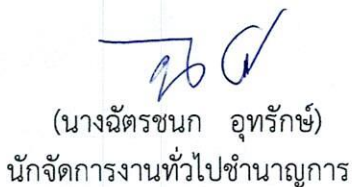 (นางฉัตรชนก อุทรักษ์)
นักจัดการงานทั่วไปชำนาญการ